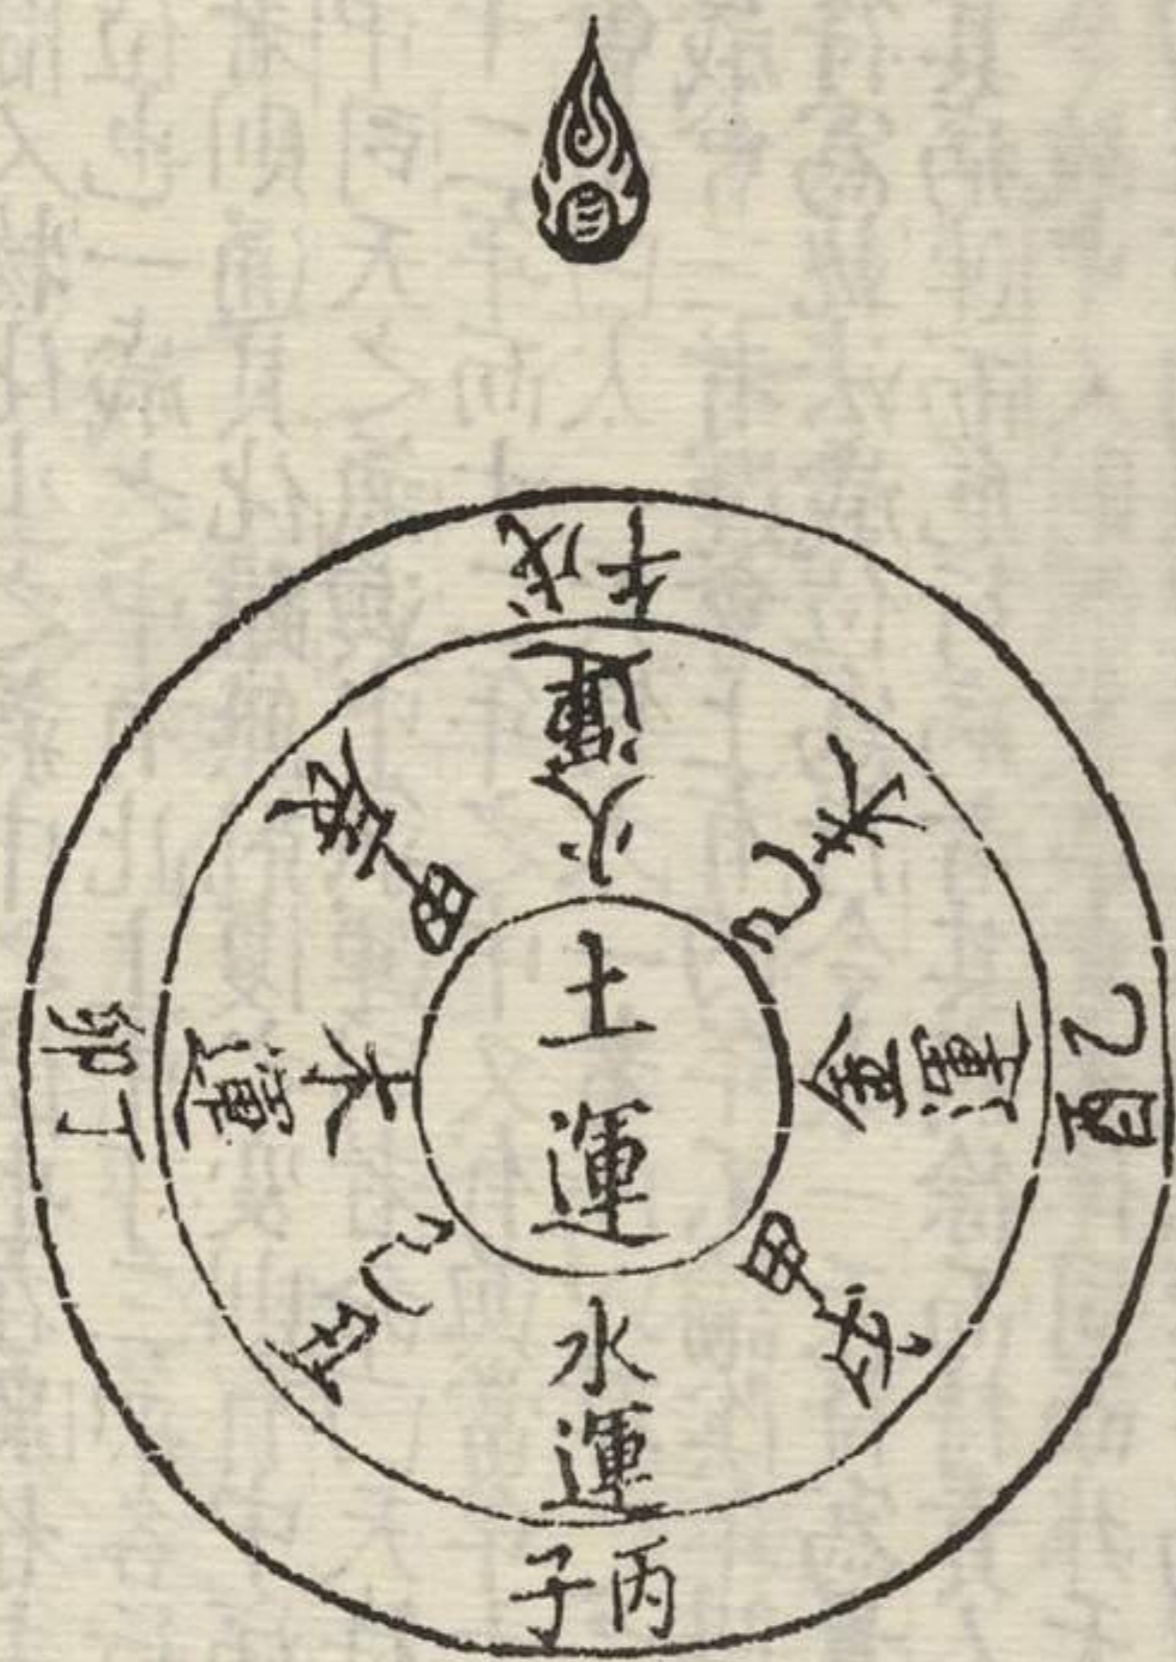 戊午
火運
甲辰
己未
丁卯
木運
土運
金運
乙酉
己丑
甲戌
水運
丙子